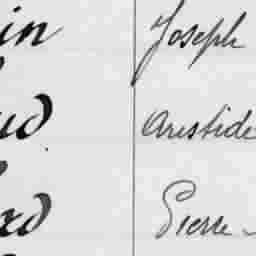 in Joseph
ud Aristide
rd Pierre